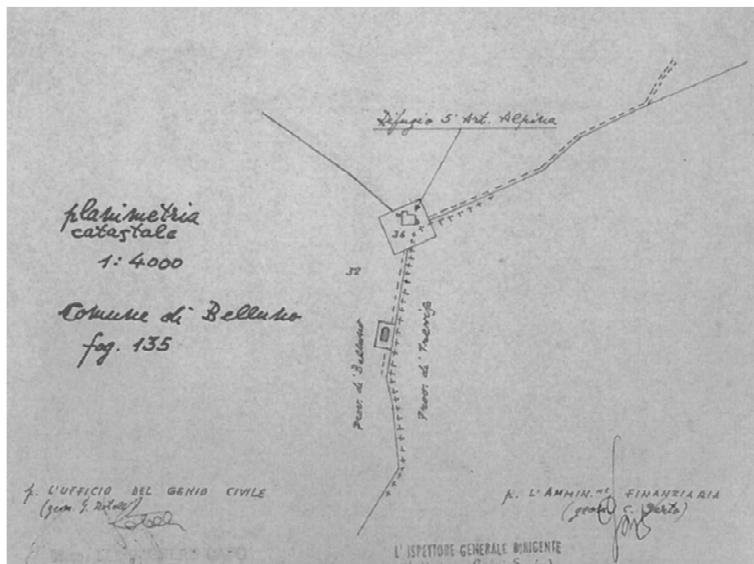 Rifugio 5° Art. Alpina
planimetria
catastale
1:4000
Comune di Belluno
fog. 135
36
32
Prov. di Belluno
Prov. di Treviso
p. L'UFFICIO DEL GENIO CIVILE
(geom. G.
p. L'AMMIN.ne FINANZIARIA
(geom. C.
L'ISPETTORE GENERALE DIRIGENTE